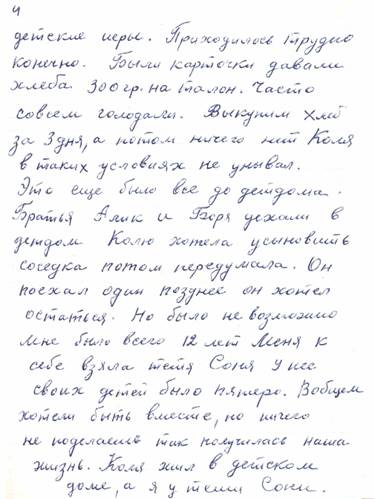 4
детские игры. Приходилось трудно
конечно. Были карточки давали
хлеба 300 гр. на талон. Часто
совсем голодали. Выкупим хлеб
за 3 дня, а потом ничего нет Коля
в таких условиях не унывал.
Это еще было все до детдома.
Братья Алик и Боря уехали в
детдом Колю хотела усыновить
соседка потом передумала. Он
поехал один позднее он хотел
остаться. Но было не возможно
мне было всего 12 лет Меня к
себе взяла тетя Соня У нее
своих детей было пятеро. Вобщем
хотели быть вместе, но ничего
не поделаешь так получилась наша
жизнь. Коля жил в детском
доме, а я у тети Сони.